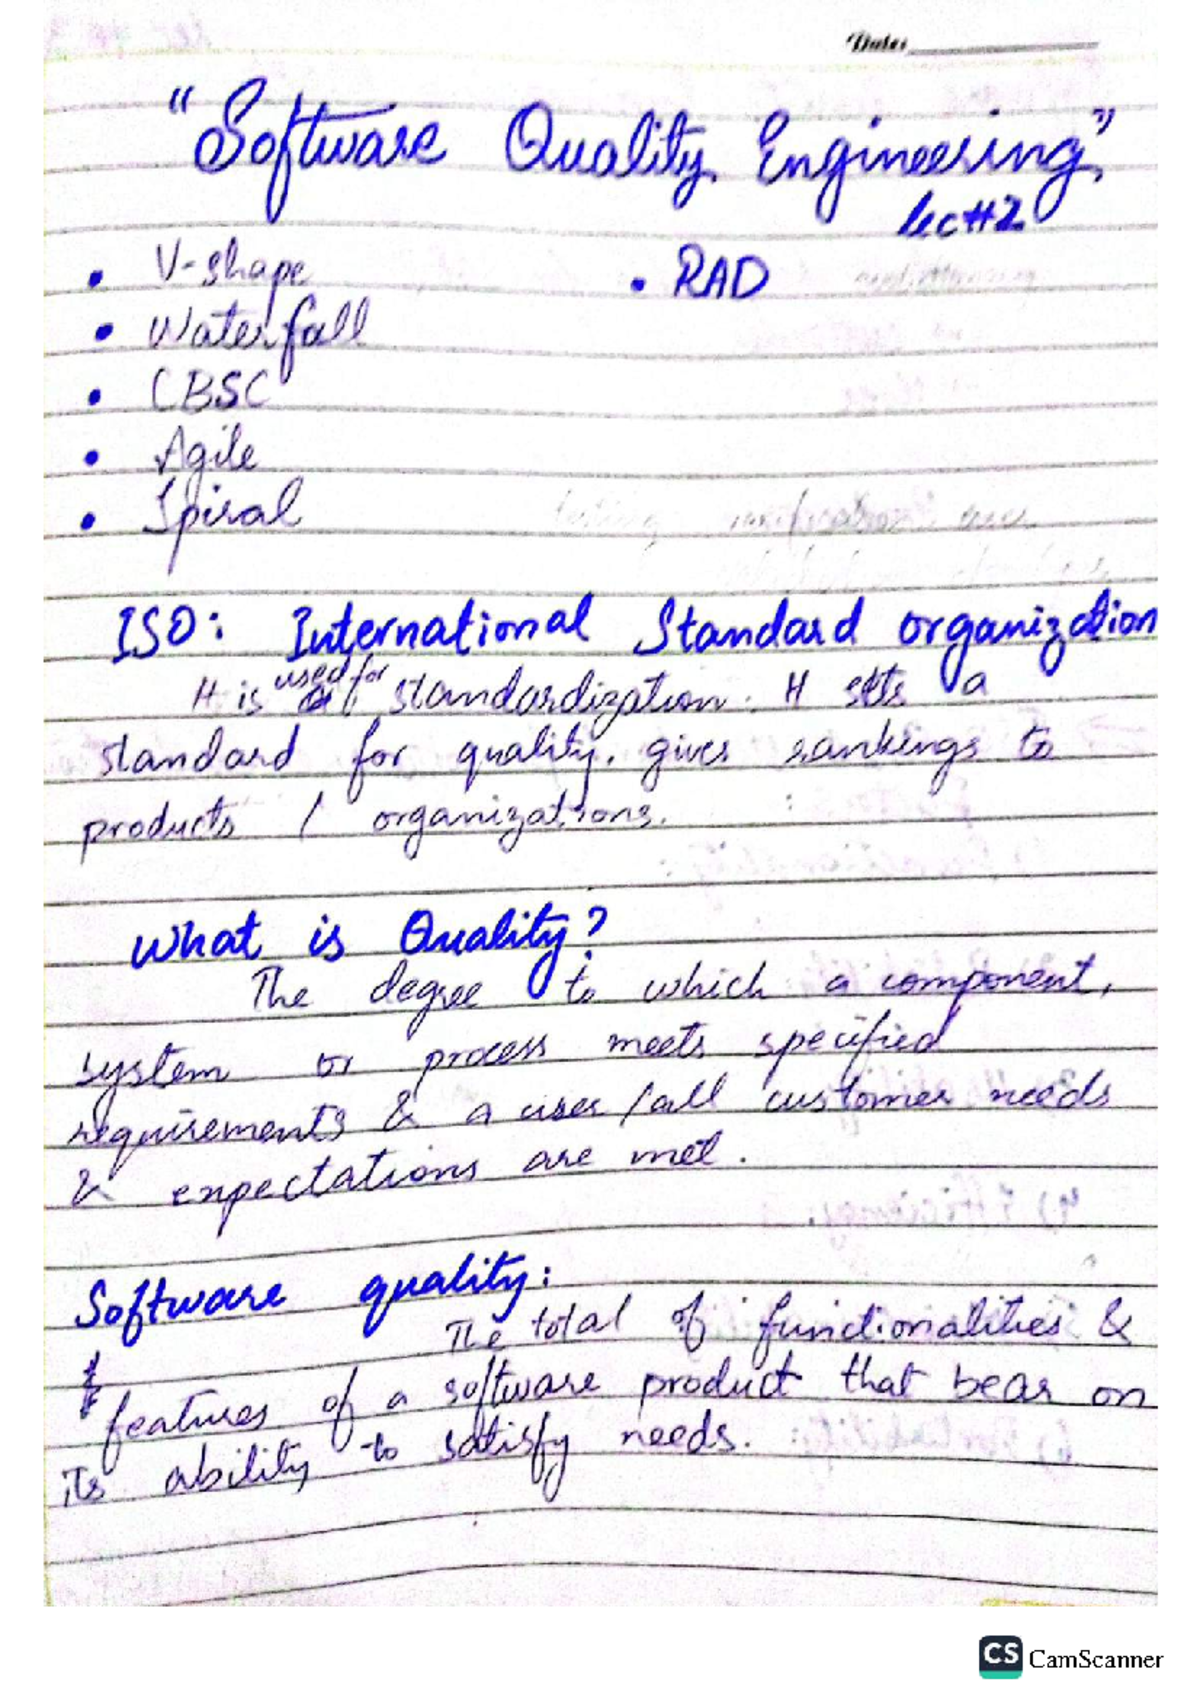 Date:
"Software Quality Engineering"
Lec#2
• V-shape
• RAD
• Waterfall
• CBSC
• Agile
• Spiral
ISO: International Standard organization
It is used for standardization. It sets a
standard for quality. gives rankings to
products / organizations.
What is Quality?
The degree to which a component,
system or process meets specified
requirements & a user/all customer needs
& expectations are met.
Software quality:
The total of functionalities &
features of a software product that bear on
its ability to satisfy needs.
CS CamScanner